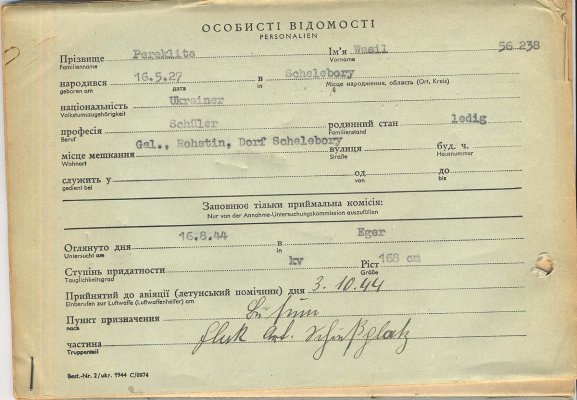 ОСОБИСТІ ВІДОМОСТІ
PERSONALIEN
Прізвище Pereklita Ім'я Wasil 56 238
Familienname Vorname
народився 16.5.27 в Schelebory
geboren am дата in Місце народження, область (Ort, Kreis)
національність Ukrainer
Volkstumszugehörigkeit
професія Schüler родинний стан ledig
Beruf Familienstand
місце мешкання Gal., Rohatin, Dorf Schelebory вулиця буд. ч.
Wohnort Straße Hausnummer
служить у од до
gedient bei von bis
Заповнює тільки приймальна комісія:
Nur von der Annahme-Untersuchungskommission auszufüllen
Оглянуто дня 16.8.44 в Eger
Untersucht am in
Ступінь придатности kv Ріст 168 cm
Tauglichkeitsgrad Größe
Прийнятий до авіяції (летунський помічник) дня 3.10.44
Einberufen zur Luftwaffe (Luftwaffenhelfer) am
Пункт призначення
nach
частина Schießplatz
Truppenteil
Best.-Nr. 2/ukr. 1944 C/0974